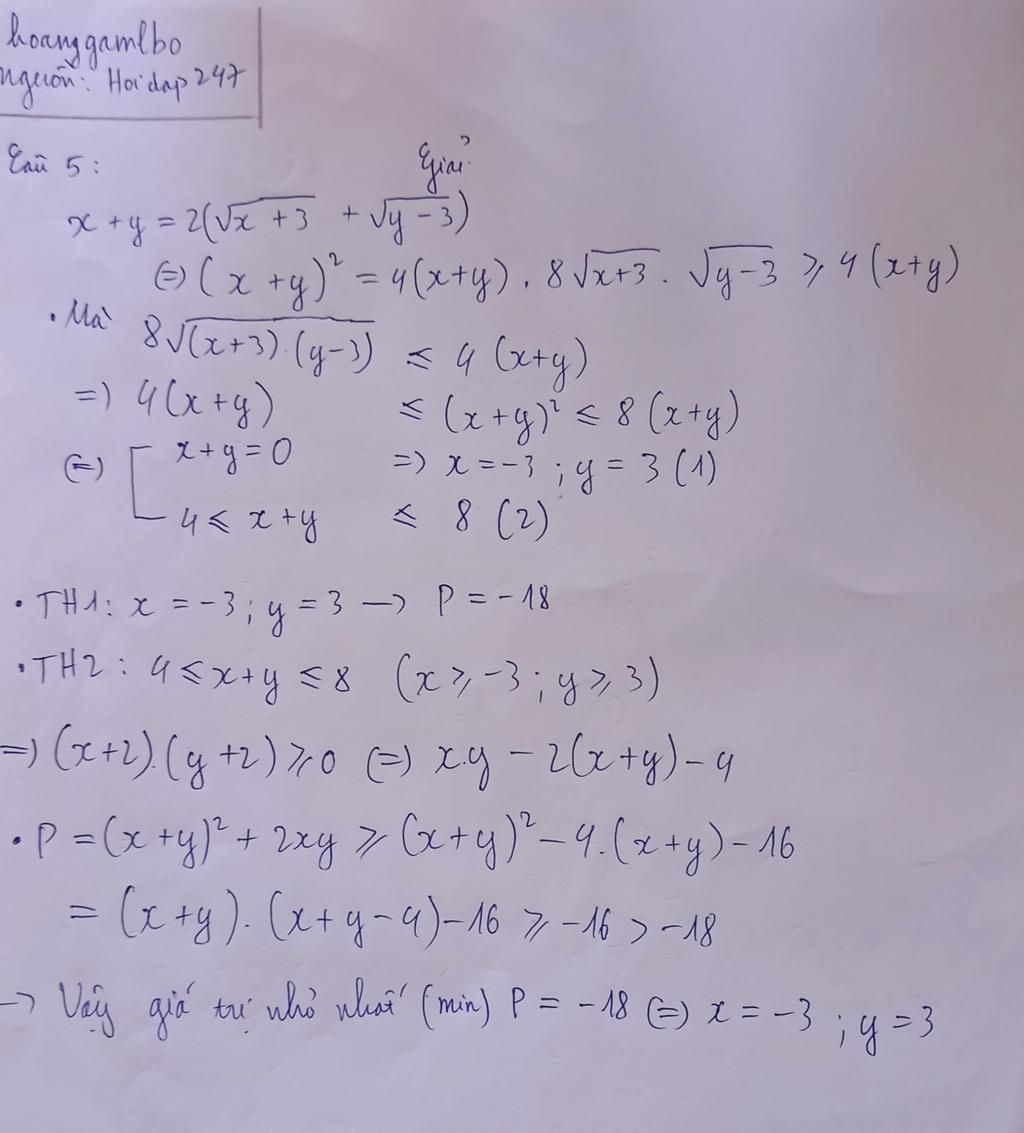 hoanggamlbo
nguồn: Hoidap247
Câu 5: Giải
x + y = 2(√x+3 + √y-3)
(=) (x + y)² = 4(x+y) . 8√x+3 . √y-3 ⩾ 4(x+y)
• Mà 8√(x+3).(y-3) ⩽ 4 (x+y)
=) 4(x+y) ⩽ (x+y)² ⩽ 8(x+y)
(=) [ x+y=0 =) x=-3 ; y=3 (1)
4 ⩽ x+y ⩽ 8 (2)
• TH1: x = -3 ; y = 3 —> P = -18
• TH2 : 4 ⩽ x+y ⩽ 8 (x ⩾ -3 ; y ⩾ 3)
=) (x+2).(y+2) ⩾ 0 (=) x.y - 2(x+y) - 4
• P = (x+y)² + 2xy ⩾ (x+y)² - 4.(x+y) - 16
= (x+y). (x+y-4) - 16 ⩾ -16 > -18
—> Vậy giá trị nhỏ nhất (min) P = -18 (=) x = -3 ; y = 3